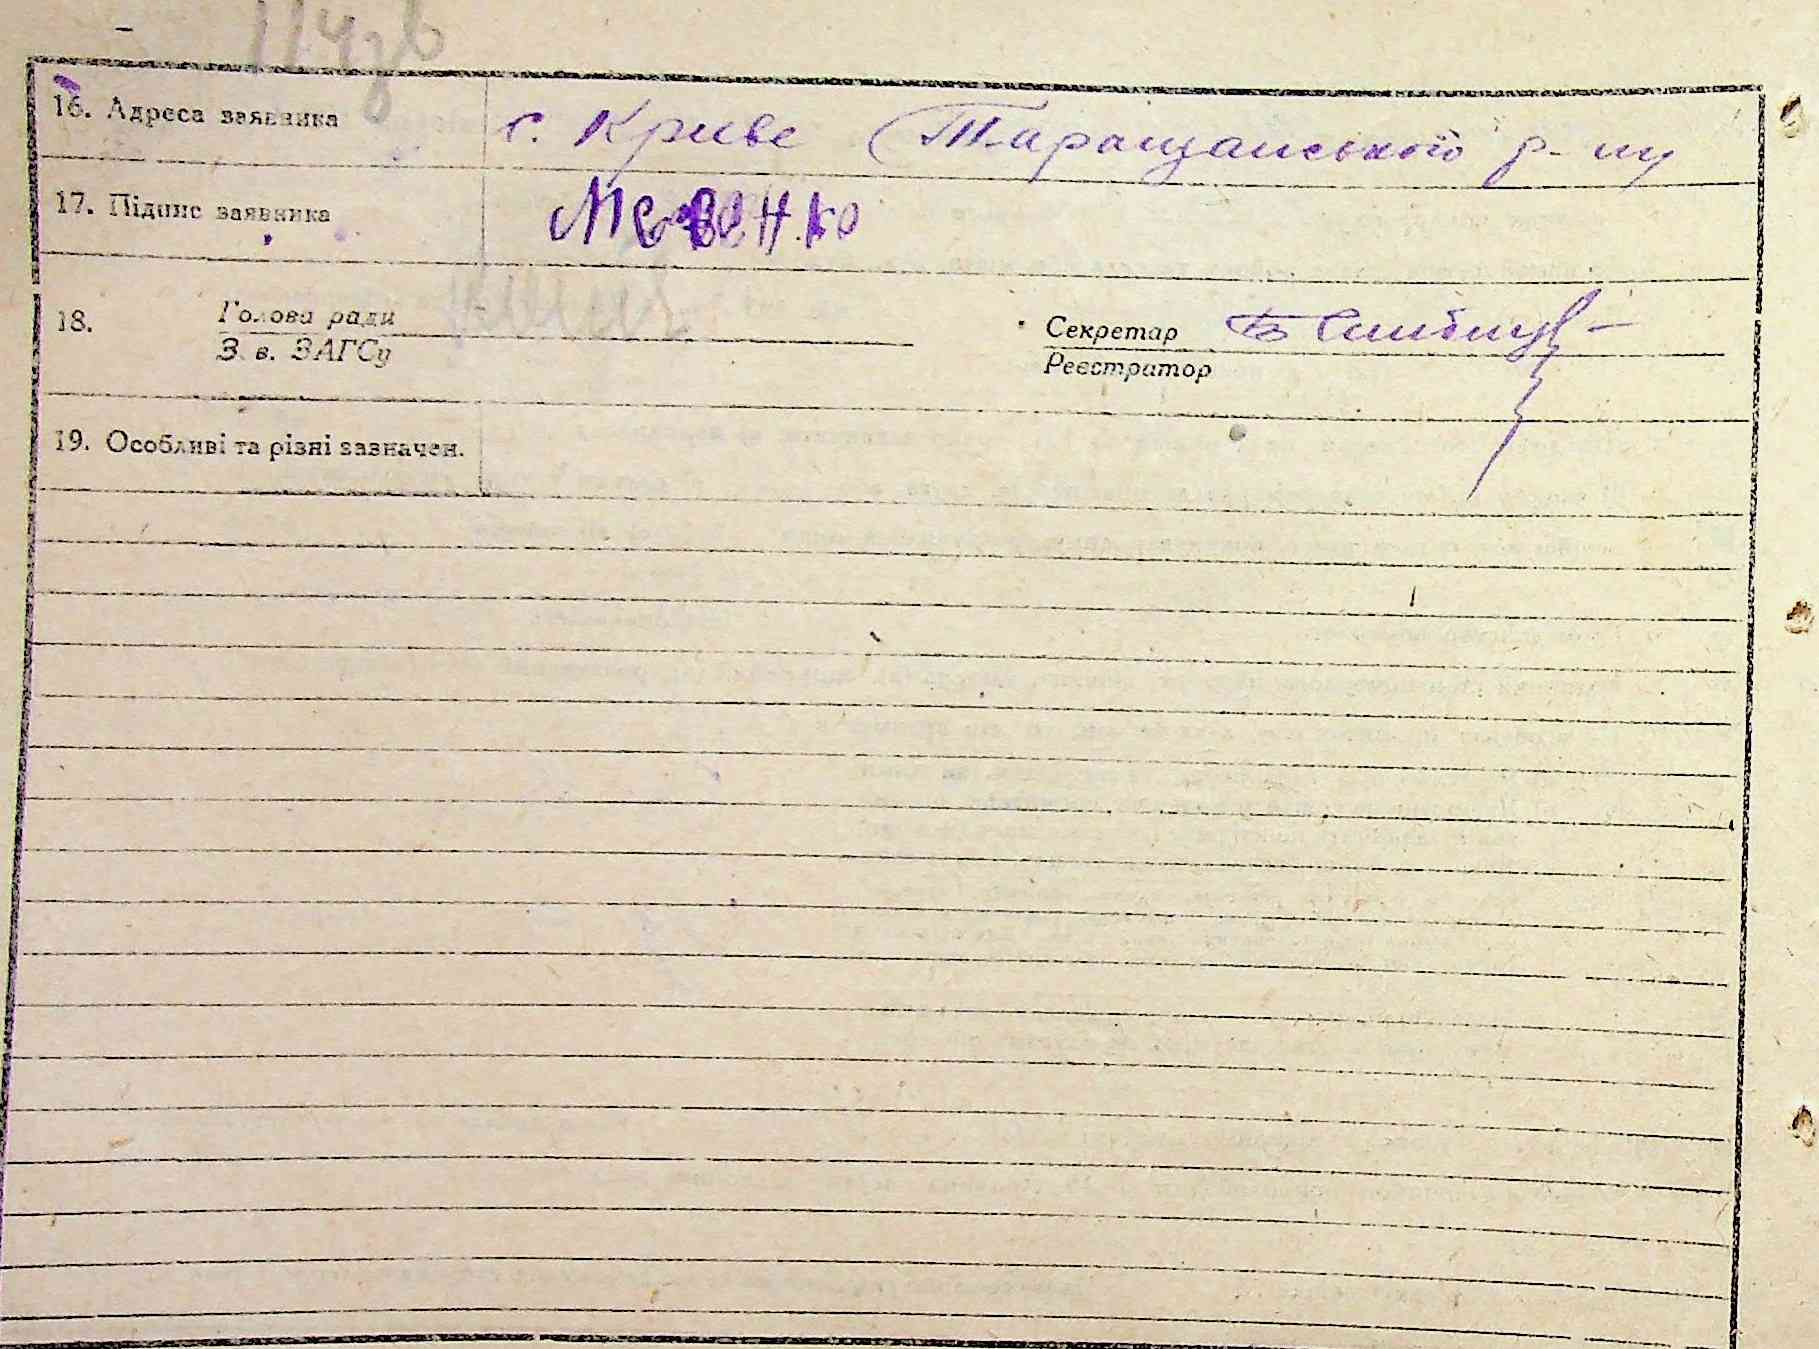 114зв
16. Адреса заявника с. Криве Таращанського р-ну
17. Підпис заявника
18. Голова ради Секретар
З в. ЗАГСу Реєстратор
19. Особливі та різні зазначен.